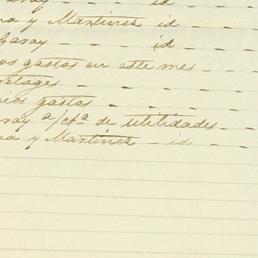 id
a y Martinez id
Garay id
os gastos en este mes
rios gastos
ray a/cta de utilidades
na y Martinez id